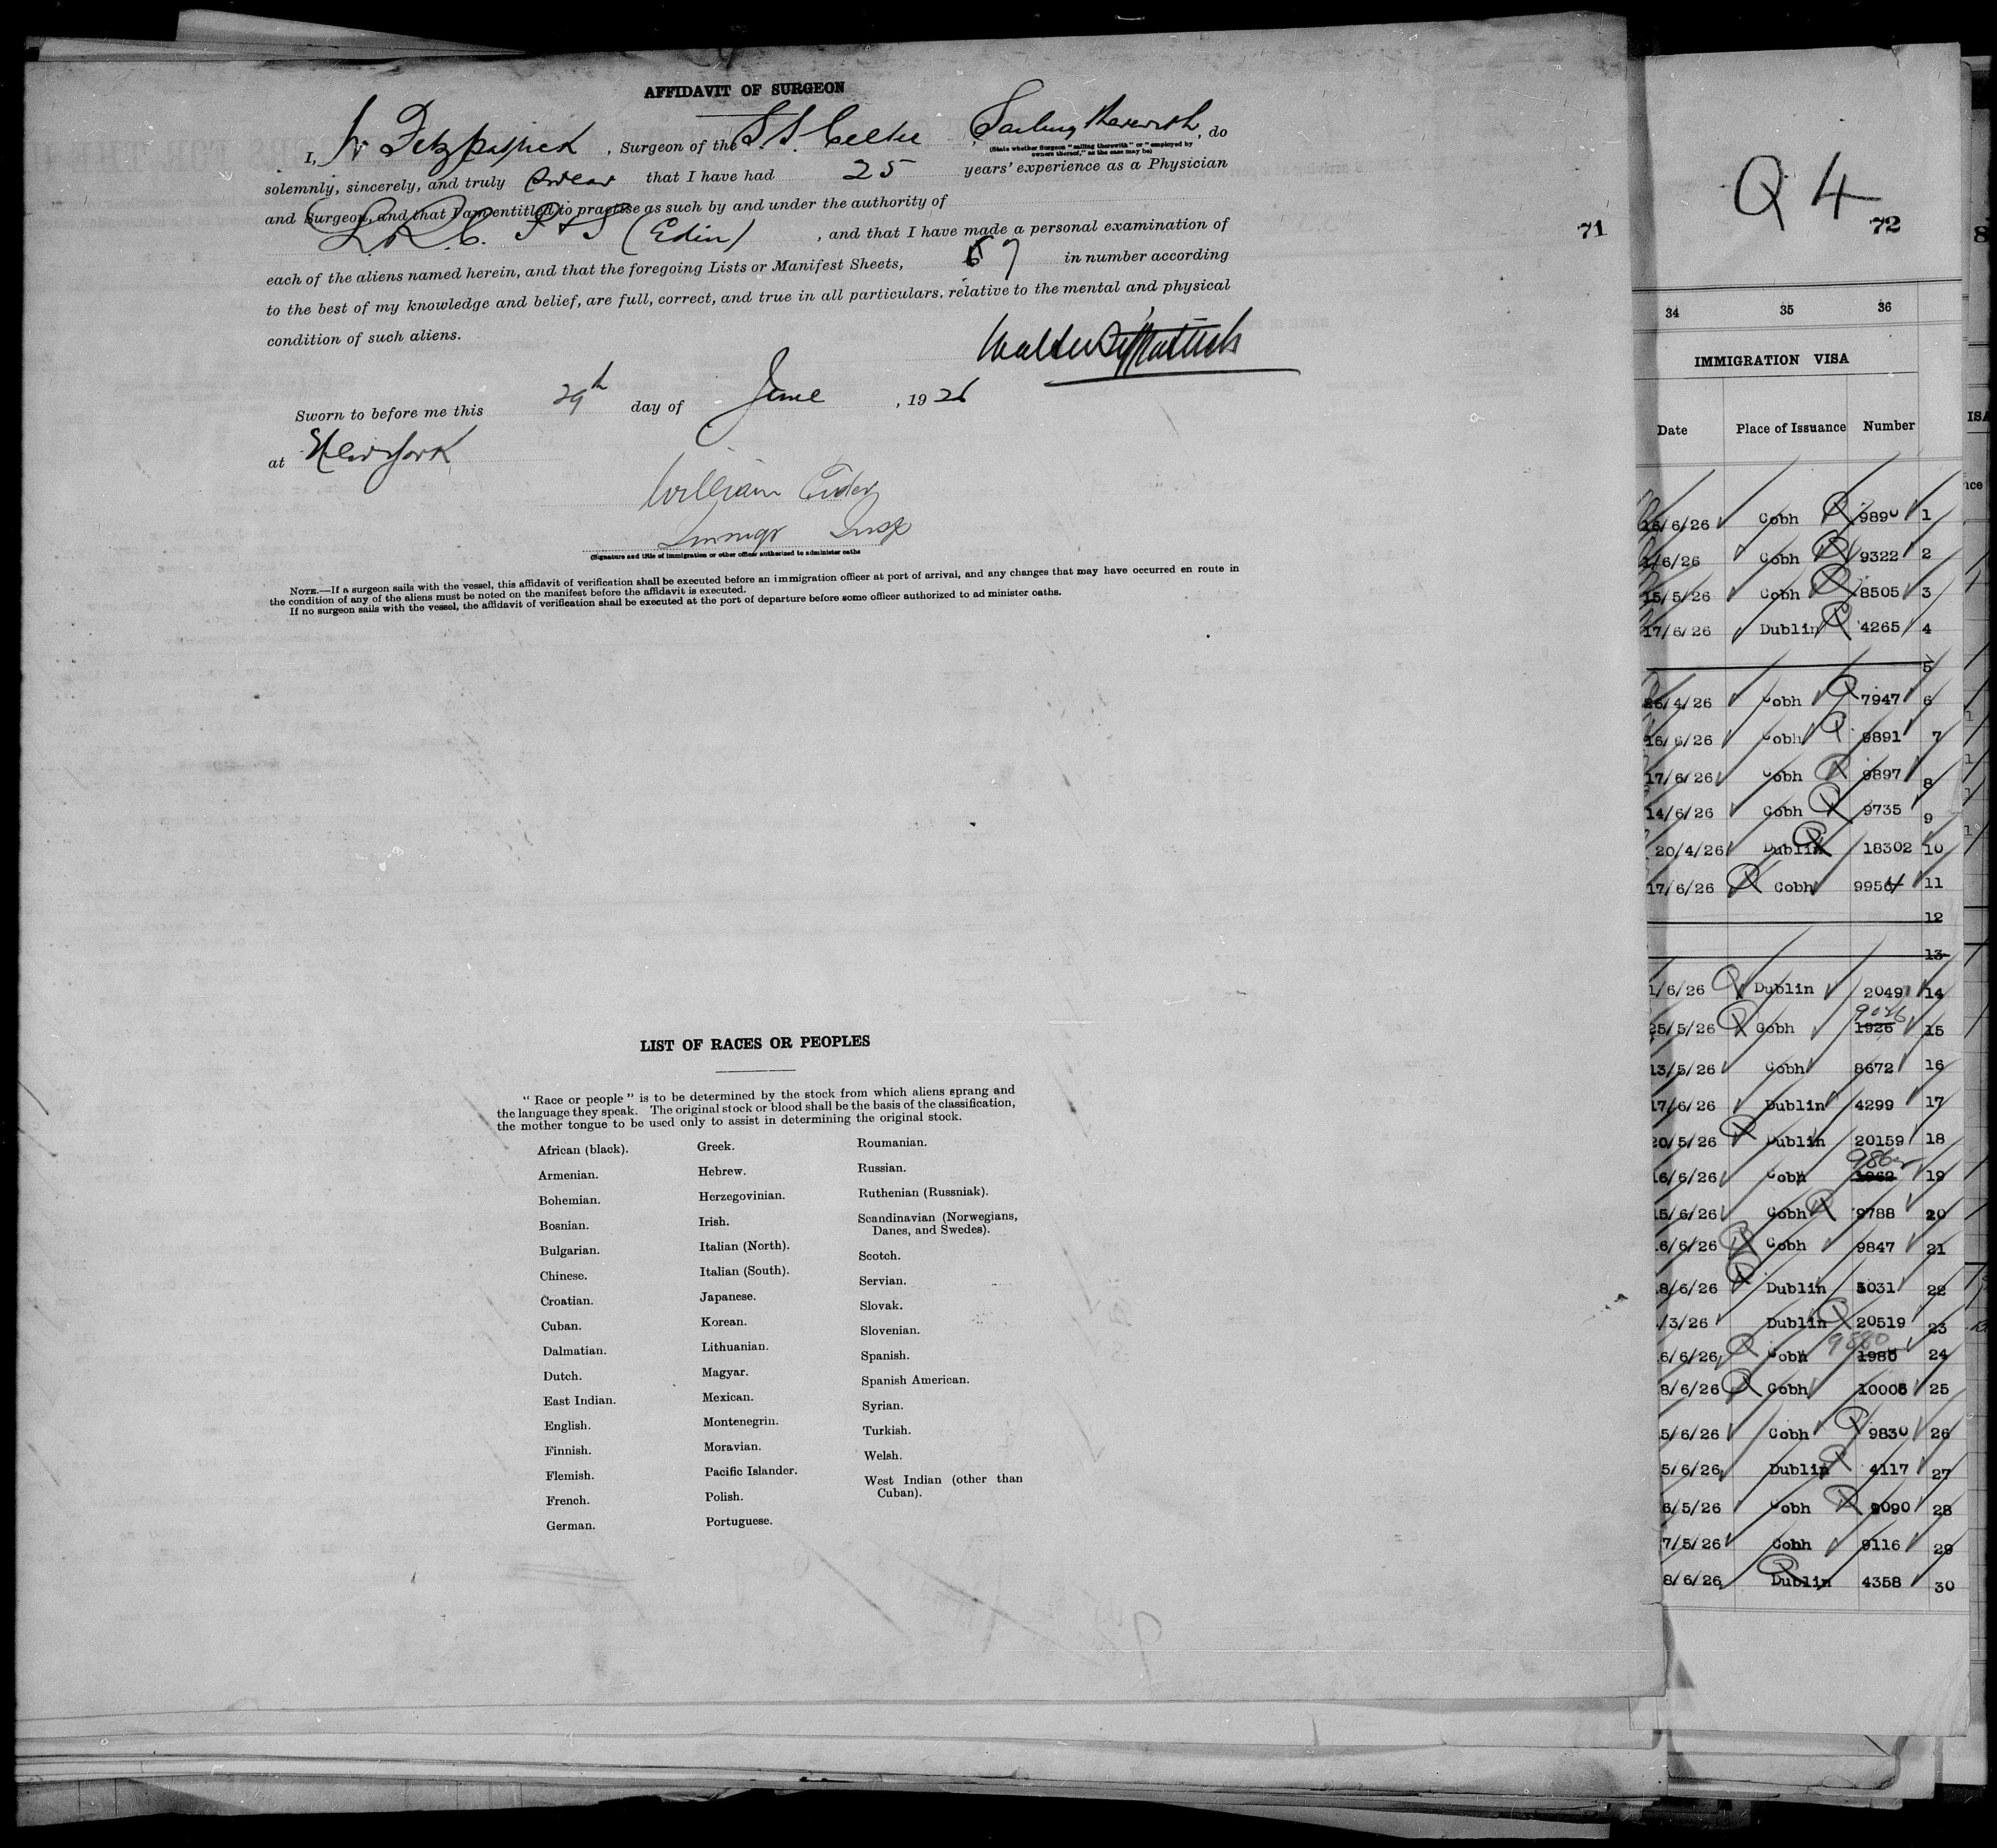 AFFIDAVIT OF SURGEON
I, W Fitzpatrick, Surgeon of the S.S. Celtic Sailing therewith, do
(State whether Surgeon "sailing therewith" or "employed by
owners thereof," as the case may be)
solemnly, sincerely, and truly swear that I have had 25 years' experience as a Physician
and Surgeon, and that I am entitled to practise as such by and under the authority of
L.R.C. P & S (Edin), and that I have made a personal examination of
each of the aliens named herein, and that the foregoing Lists or Manifest Sheets, in number according
to the best of my knowledge and belief, are full, correct, and true in all particulars, relative to the mental and physical
condition of such aliens.
Walter Fitzpatrick
Sworn to before me this 29th day of June, 1926
at New York
William
Immigr Insp
(Signature and title of immigration or other officer authorized to administer oaths
NOTE.—If a surgeon sails with the vessel, this affidavit of verification shall be executed before an immigration officer at port of arrival, and any changes that may have occurred en route in
the condition of any of the aliens must be noted on the manifest before the affidavit is executed.
If no surgeon sails with the vessel, the affidavit of verification shall be executed at the port of departure before some officer authorized to ad minister oaths.
71
LIST OF RACES OR PEOPLES
"Race or people" is to be determined by the stock from which aliens sprang and
the language they speak. The original stock or blood shall be the basis of the classification,
the mother tongue to be used only to assist in determining the original stock.
African (black).
Armenian.
Bohemian.
Bosnian.
Bulgarian.
Chinese.
Croatian.
Cuban.
Dalmatian.
Dutch.
East Indian.
English.
Finnish.
Flemish.
French.
German.
Greek.
Hebrew.
Herzegovinian.
Irish.
Italian (North).
Italian (South).
Japanese.
Korean.
Lithuanian.
Magyar.
Mexican.
Montenegrin.
Moravian.
Pacific Islander.
Polish.
Portuguese.
Roumanian.
Russian.
Ruthenian (Russniak).
Scandinavian (Norwegians,
Danes, and Swedes).
Scotch.
Servian.
Slovak.
Slovenian.
Spanish.
Spanish American.
Syrian.
Turkish.
Welsh.
West Indian (other than
Cuban).
Q 4
72
34 35 36
IMMIGRATION VISA
Date Place of Issuance Number
16/6/26 Cobh 9890 1
1/6/26 Cobh 9322 2
15/5/26 Cobh 8505 3
17/6/26 Dublin 4265 4
5
26/4/26 Cobh 7947 6
16/6/26 Cobh 9891 7
17/6/26 Cobh 9897 8
14/6/26 Cobh 9735 9
20/4/26 Dublin 18302 10
17/6/26 Cobh 9954 11
12
13
1/6/26 Dublin 2049 14
9026
25/5/26 Cobh 1926 15
13/5/26 Cobh 8672 16
17/6/26 Dublin 4299 17
20/5/26 Dublin 20159 18
16/6/26 Cobh 1962 19
15/6/26 Cobh 9788 20
6/6/26 Cobh 9847 21
8/6/26 Dublin 22
/3/26 Dublin 20519 23
9880
6/6/26 Cobh 1980 24
8/6/26 Cobh 10006 25
5/6/26 Cobh 9830 26
5/6/26 Dublin 4117 27
6/5/26 Cobh 9090 28
7/5/26 Cobh 9116 29
8/6/26 Dublin 4358 30